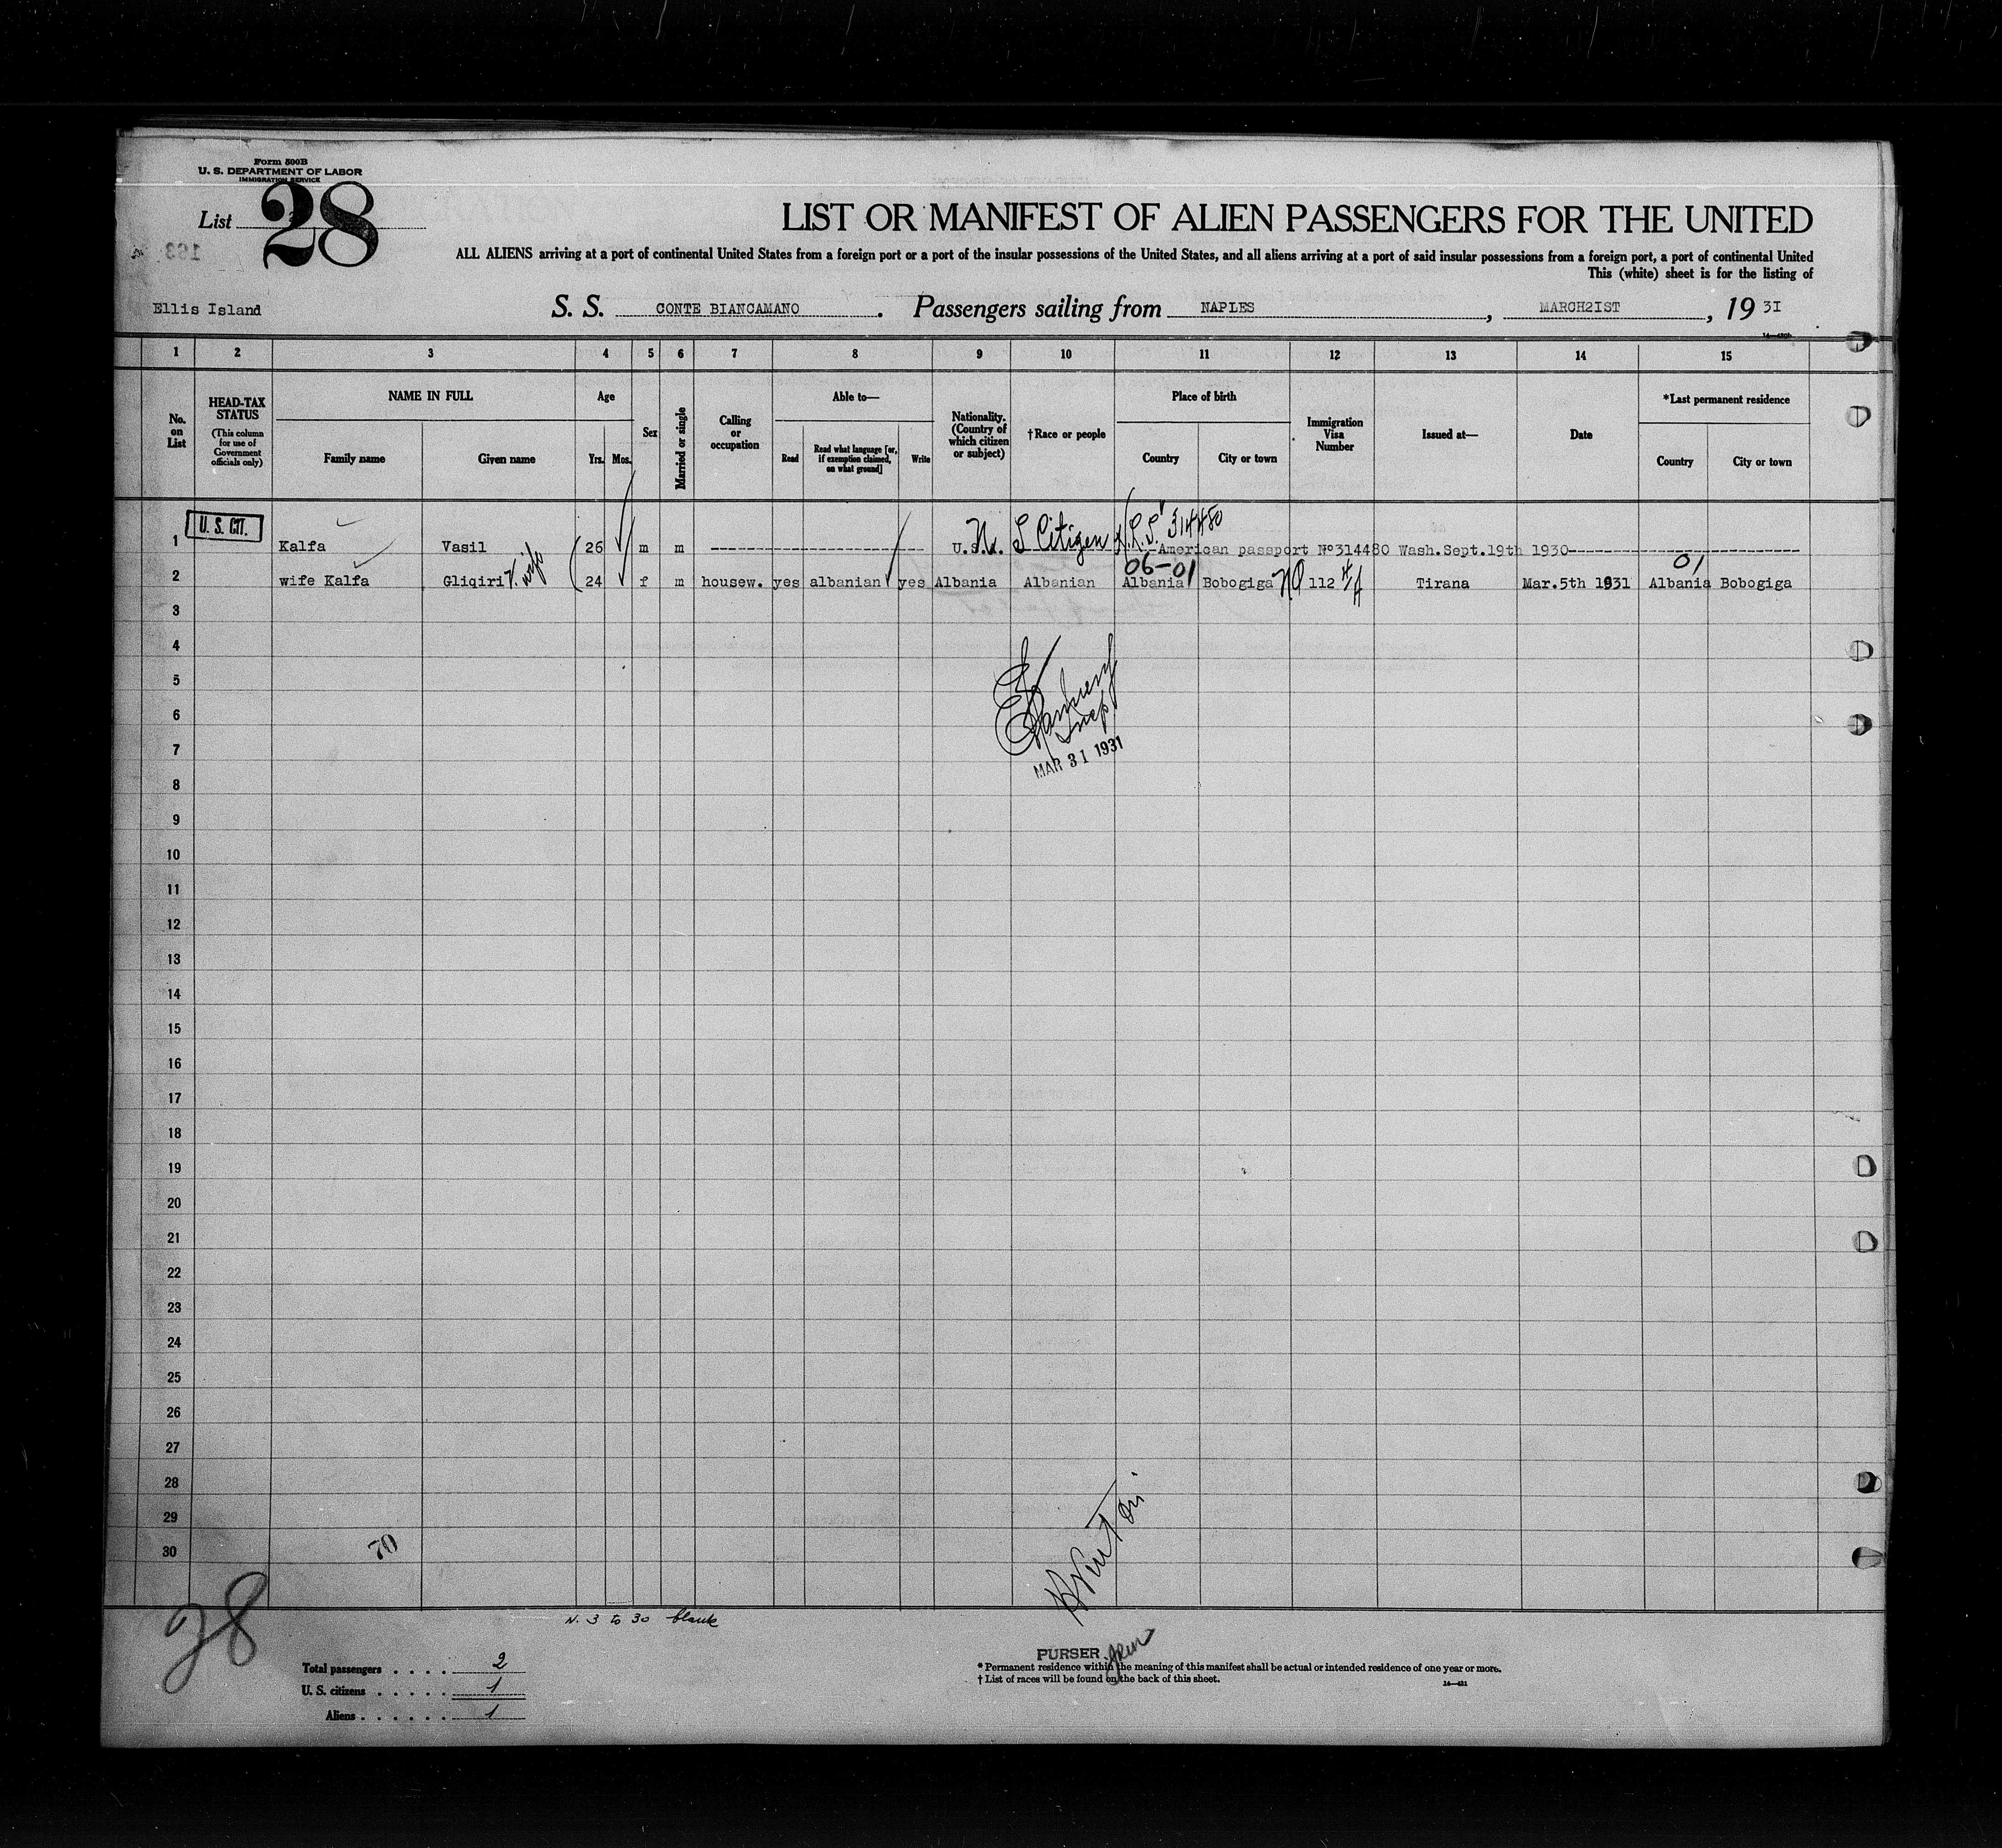 Form 500B
U. S. DEPARTMENT OF LABOR
IMMIGRATION SERVICE
List 28
LIST OR MANIFEST OF ALIEN PASSENGERS FOR THE UNITED
ALL ALIENS arriving at a port of continental United States from a foreign port or a port of the insular possessions of the United States, and all aliens arriving at a port of said insular possessions from a foreign port, a port of continental United
This (white) sheet is for the listing of
Ellis Island S. S. CONTE BIANCAMANO . Passengers sailing from NAPLES , MARCH2IST , 19 3I
1 2 3 4 5 6 7 8 9 10 11 12 13 14 15
No. on List
HEAD-TAX STATUS (This column for use of Government officials only)
NAME IN FULL Family name Given name
Age Yrs. Mos.
Sex
Married or single
Calling or occupation
Able to— Read Read what language [or, if exemption claimed, on what ground] Write
Nationality. (Country of which citizen or subject)
†Race or people
Place of birth Country City or town
Immigration Visa Number
Issued at—
Date
*Last permanent residence Country City or town
U. S. CIT.
S Citizen 314480
1 Kalfa Vasil 26 m m U.S. American passport Nº314480 Wash.Sept.19th 1930
wife 06-01 01
2 wife Kalfa Gliqiri 24 f m housew. yes albanian yes Albania Albanian Albania Bobogiga NQ 112 Tirana Mar.5th 1931 Albania Bobogiga
3
4
5
6
Insp
7
MAR 31 1931
8
9
10
11
12
13
14
15
16
17
18
19
20
21
22
23
24
25
26
27
28
29
30
70
28
N. 3 to 30 blank
PURSER
Total passengers . . . . 2
U. S. citizens . . . . . 1
Aliens . . . . . . 1
* Permanent residence within the meaning of this manifest shall be actual or intended residence of one year or more.
† List of races will be found on the back of this sheet.